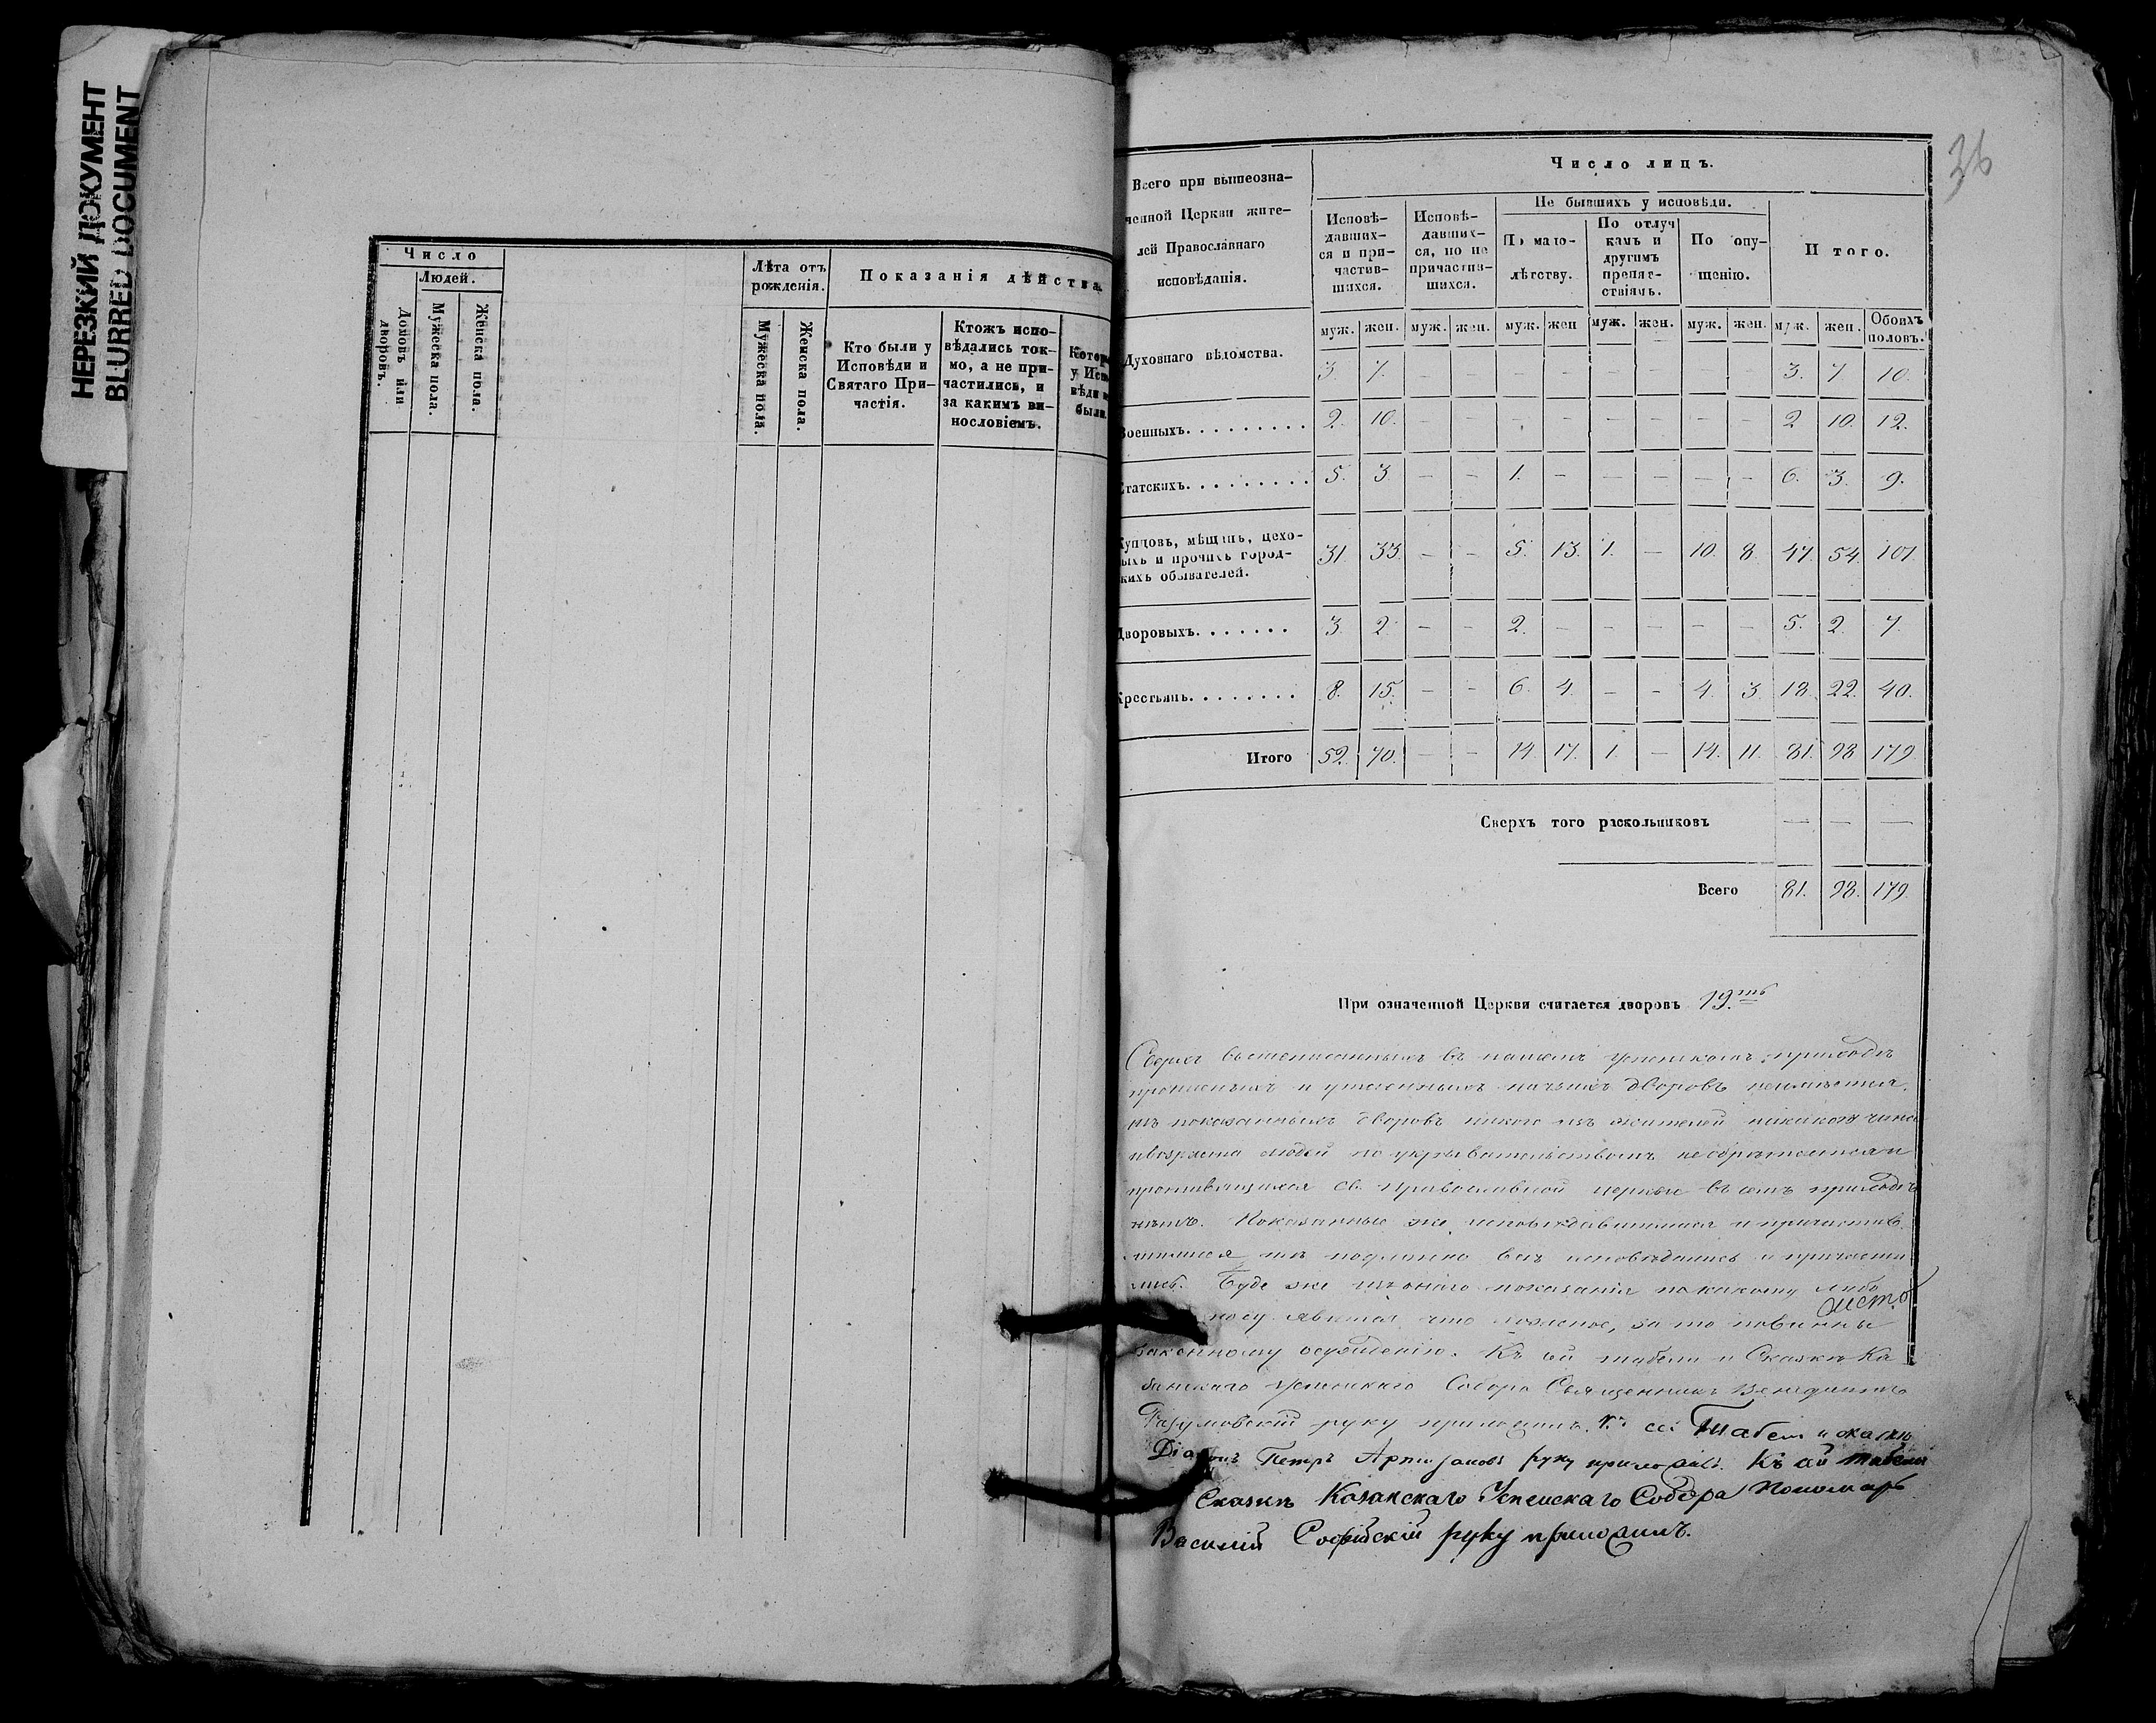 НЕРЕЗКИЙ ДОКУМЕНТ
BLURRED DOCUMENT
Число
Людей.
Домовъ или дворовъ.
Мужеска пола.
Женска пола.
Лѣта отъ рожденія.
Мужеска пола.
Женска пола.
Показанія дѣйства.
Кто были у
Исповѣди и
Святаго При-
частія.
Ктожъ испо-
вѣдались ток-
мо, а не при-
частились, и
за какимъ ви-
нословіемъ.
у Испо
вѣди н
были.
36
Всего при вышеозна-
ченной Церкви жите-
лей Православнаго
исповѣданія.
Число лицъ.
Исповѣ-
давших-
ся и при-
частив-
шихся.
Исповѣ-
давших-
ся, но не
причастив-
шихся.
Не бывшихъ у исповѣди.
По мало-
лѣтству.
По отлуч
камъ и
другимъ
препят-
ствіямъ.
По опу-
щенію.
Итого.
муж. жен. муж. жен. муж. жен муж. жен. муж. жен. муж. жен. Обоихъ половъ.
Духовнаго вѣдомства. 3. 7. — — — — — — — — 3. 7. 10.
Военныхъ. 2. 10. — — — — — — — — 2 10. 12.
Статскихъ. 5. 3. — — 1. — — — — — 6. 3. 9.
Купцовъ, мѣщанъ, цехо-
ныхъ и прочихъ город-
скихъ обывателей. 31. 33. — — 5. 13. 1. — 10. 8. 47. 54. 101.
Дворовыхъ. 3. 2. — — 2. — — — — — 5. 2. 7.
Крестьянъ. 8. 15. — — 6. 4. — — 4. 3. 18. 22. 40.
Итого 52. 70. — — 14. 17. 1. — 14. 11. 81. 98. 179.
Сверхъ того раскольниковъ — — —
Всего 81. 98. 179.
При означенной Церкви считается дворовъ 19.ть
Сверхъ вышеписанныхъ въ нашемъ Успенскомъ приходѣ
и утаенныхъ дворовъ неимѣется,
въ показанныхъ дворовъ никого изъ жителей никакого чина
и возраста людей по укрывательствомъ
Св. Православной Церкви въ семъ приходѣ
нѣтъ. Показанные же исповѣдавшимися и причастив-
шимися тѣ подлинно всѣ исповѣдались и причасти-
лись. Буде же изъ онаго показанія по какому либо
носу явится что ложное, за то повинны
законному осужденію. Къ сей табели и Сказкѣ Ка-
занскаго Успенскаго Собора Священникъ Венедиктъ
Разумовскій руку приложилъ. Къ сей Табели и сказкѣ
Діаконъ Петръ руку приложилъ. Къ сей табели
Сказкѣ Казанскаго Успенскаго Собора Пономарь
Василій Софійскій руку приложилъ.